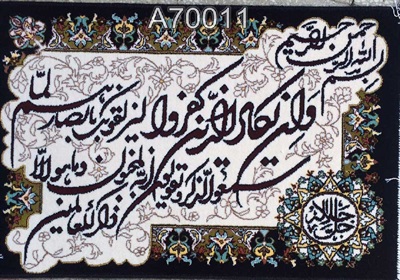 A70011
بسم الله الرحمن الرحیم
وان یکاد الذین کفروا لیزلقونک بابصارهم لما
سمعوا الذکر و یقولون انه لمجنون وما هو الا
ذکر للعالمین
جل جلاله